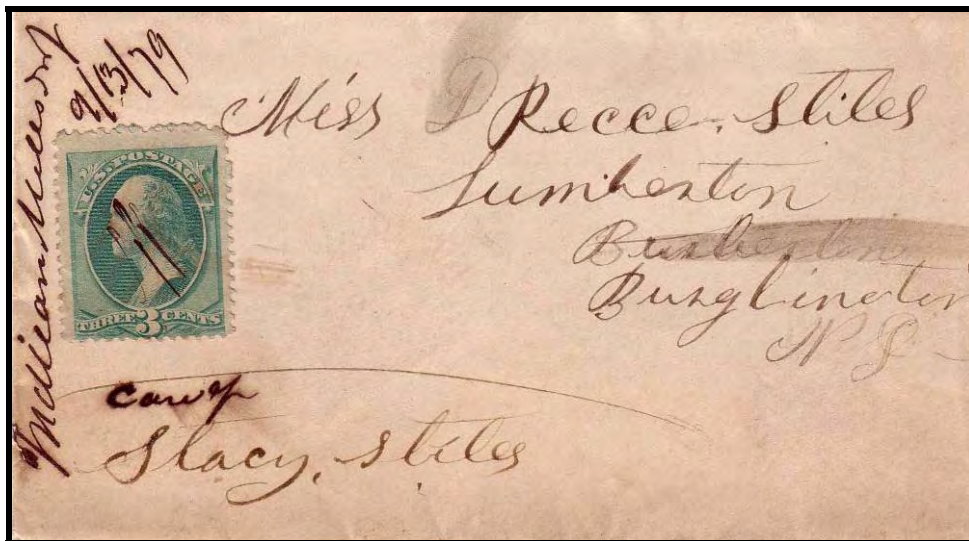 Indian Mills N J
9/13/79
U.S. POSTAGE
THREE 3 CENTS
Miss Recce. Stiles
Lumberton
Burglington
N J
care of
Stacy. Stiles